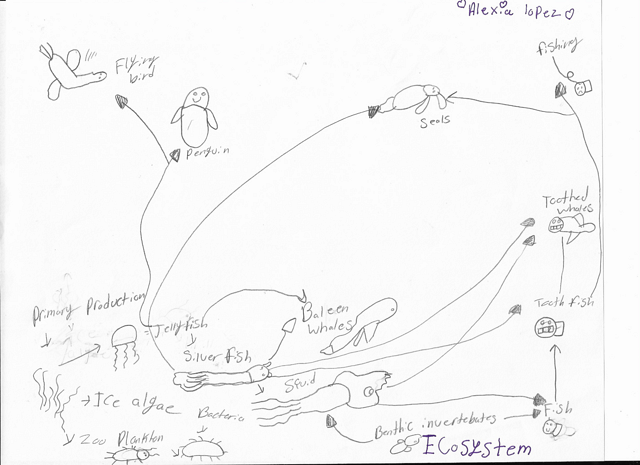 Alexia lopez
fishing
Flying
bird
Penguin
Seals
Toothed
Whales
Primary Production
Jellyfish
Baleen
Whales
Tooth fish
Silver fish
Squid
Ice algae
Bacteria
Fish
Benthic invertebates
Zoo Plankton
ECOSYStem